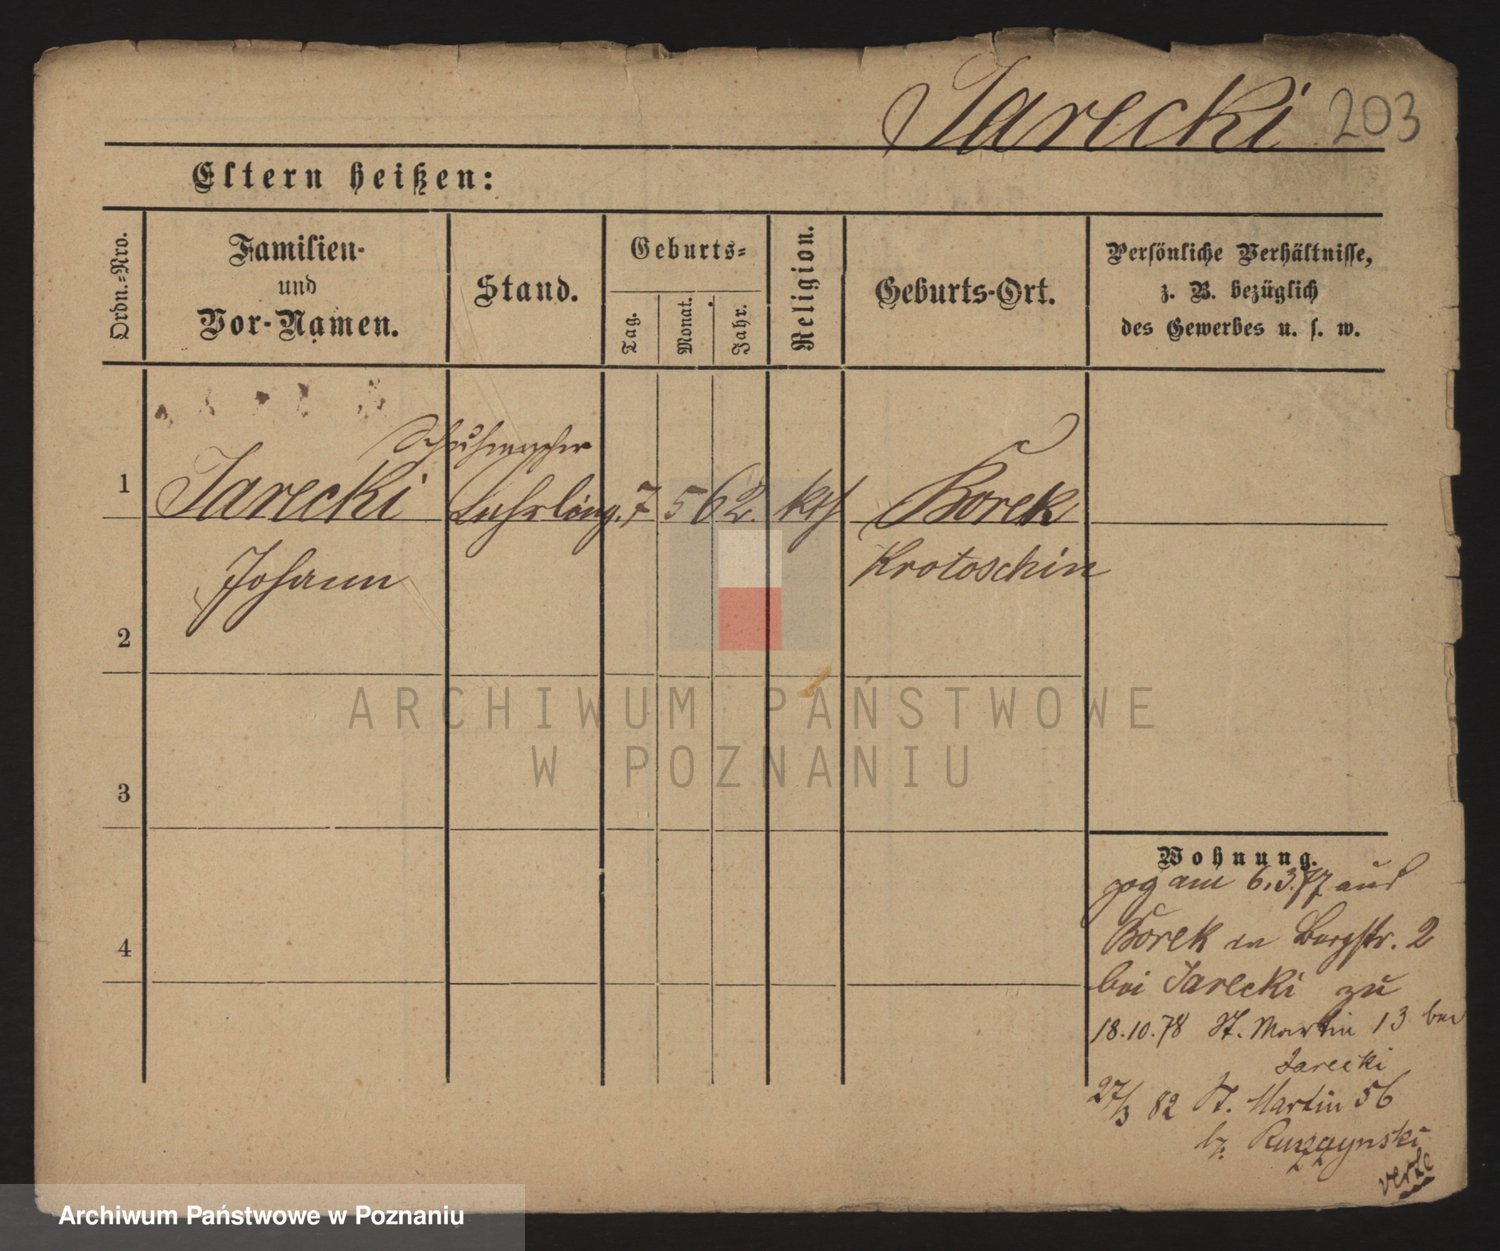 Jarecki 203
Eltern heißen:
Ordn.-Nro.
Familien-
und
Vor-Namen.
Stand.
Geburts-
Tag.
Monat.
Jahr.
Religion.
Geburts-Ort.
Persönliche Verhältnisse,
z. B. bezüglich
des Gewerbes u. s. w.
Schuhmacher
1 Jarecki Lehrling. 7 5 62. kth Borek
Johann Krotoschin
2
3
4
Wohnung.
zog am 6.3.77 aus
Borek in Bergstr. 2
bei Jarecki zu
18.10.78 St. Martin 13 bei
Jarecki
27/3 82 St. Martin 56
b.
ARCHIWUM PAŃSTWOWE
W POZNANIU
Archiwum Państwowe w Poznaniu